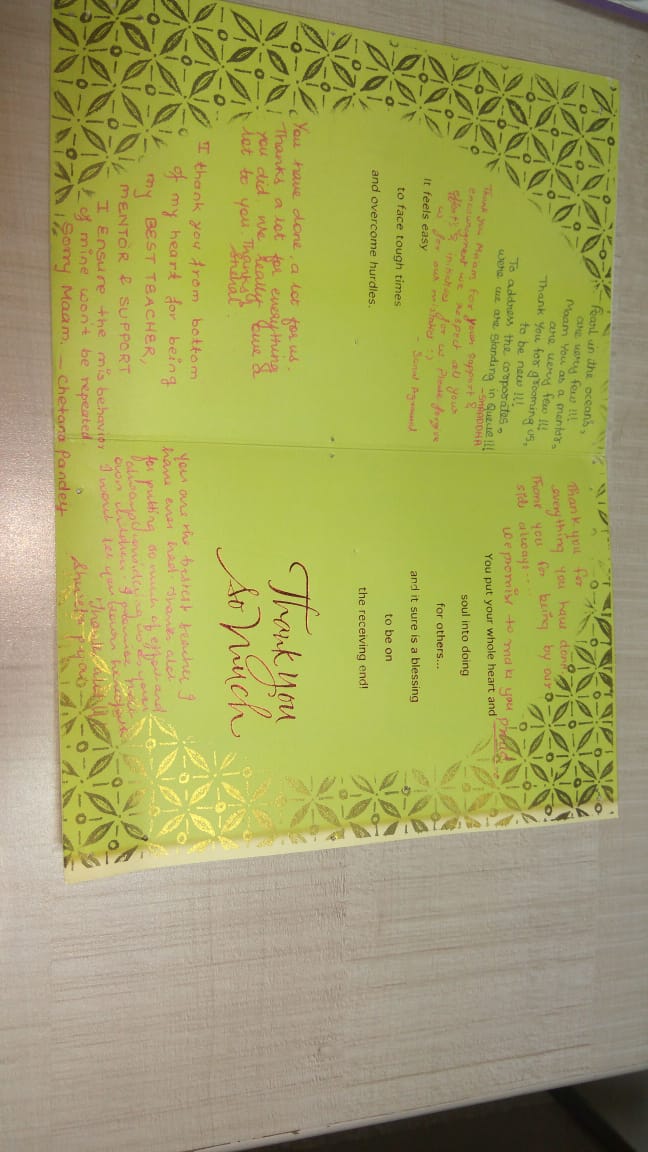 Pearl in the oceans,
are very few !!!
Maam You as a mentor,
are very few !!!
Thank You for grooming us,
to be new !!!
To address the corporates,
were we are standing in Queue !!!
-SHRADDHA
Thank you Maam for your support &
encouragment we respect all your
efforts & initiatives for us Please forgive
us for our mistakes :)
- Sonal Agrawal
It feels easy
to face tough times
and overcome hurdles.
You have done a lot for us.
Thanks a lot for everything
you did. We really owe a
lot to you. Thanks
Snehal
I thank you from bottom
of my heart for being
my BEST TEACHER,
MENTOR & SUPPORT
I Ensure the misbehavior
of mine won't be repeated.
Sorry Maam. — Chetana Pandey
Thank you for
everything you have done.
Thank you for being by our
side always....
We promise to make you proud
You put your whole heart and
soul into doing
for others...
and it sure is a blessing
to be on
the receiving end!
Thank you
so much
You are the bestest teacher I
have ever had. Thanks alot
for putting so much of effort and
always considering us as your
own children. I promise that
I won't let you down
Thanks alot !!
Shweta